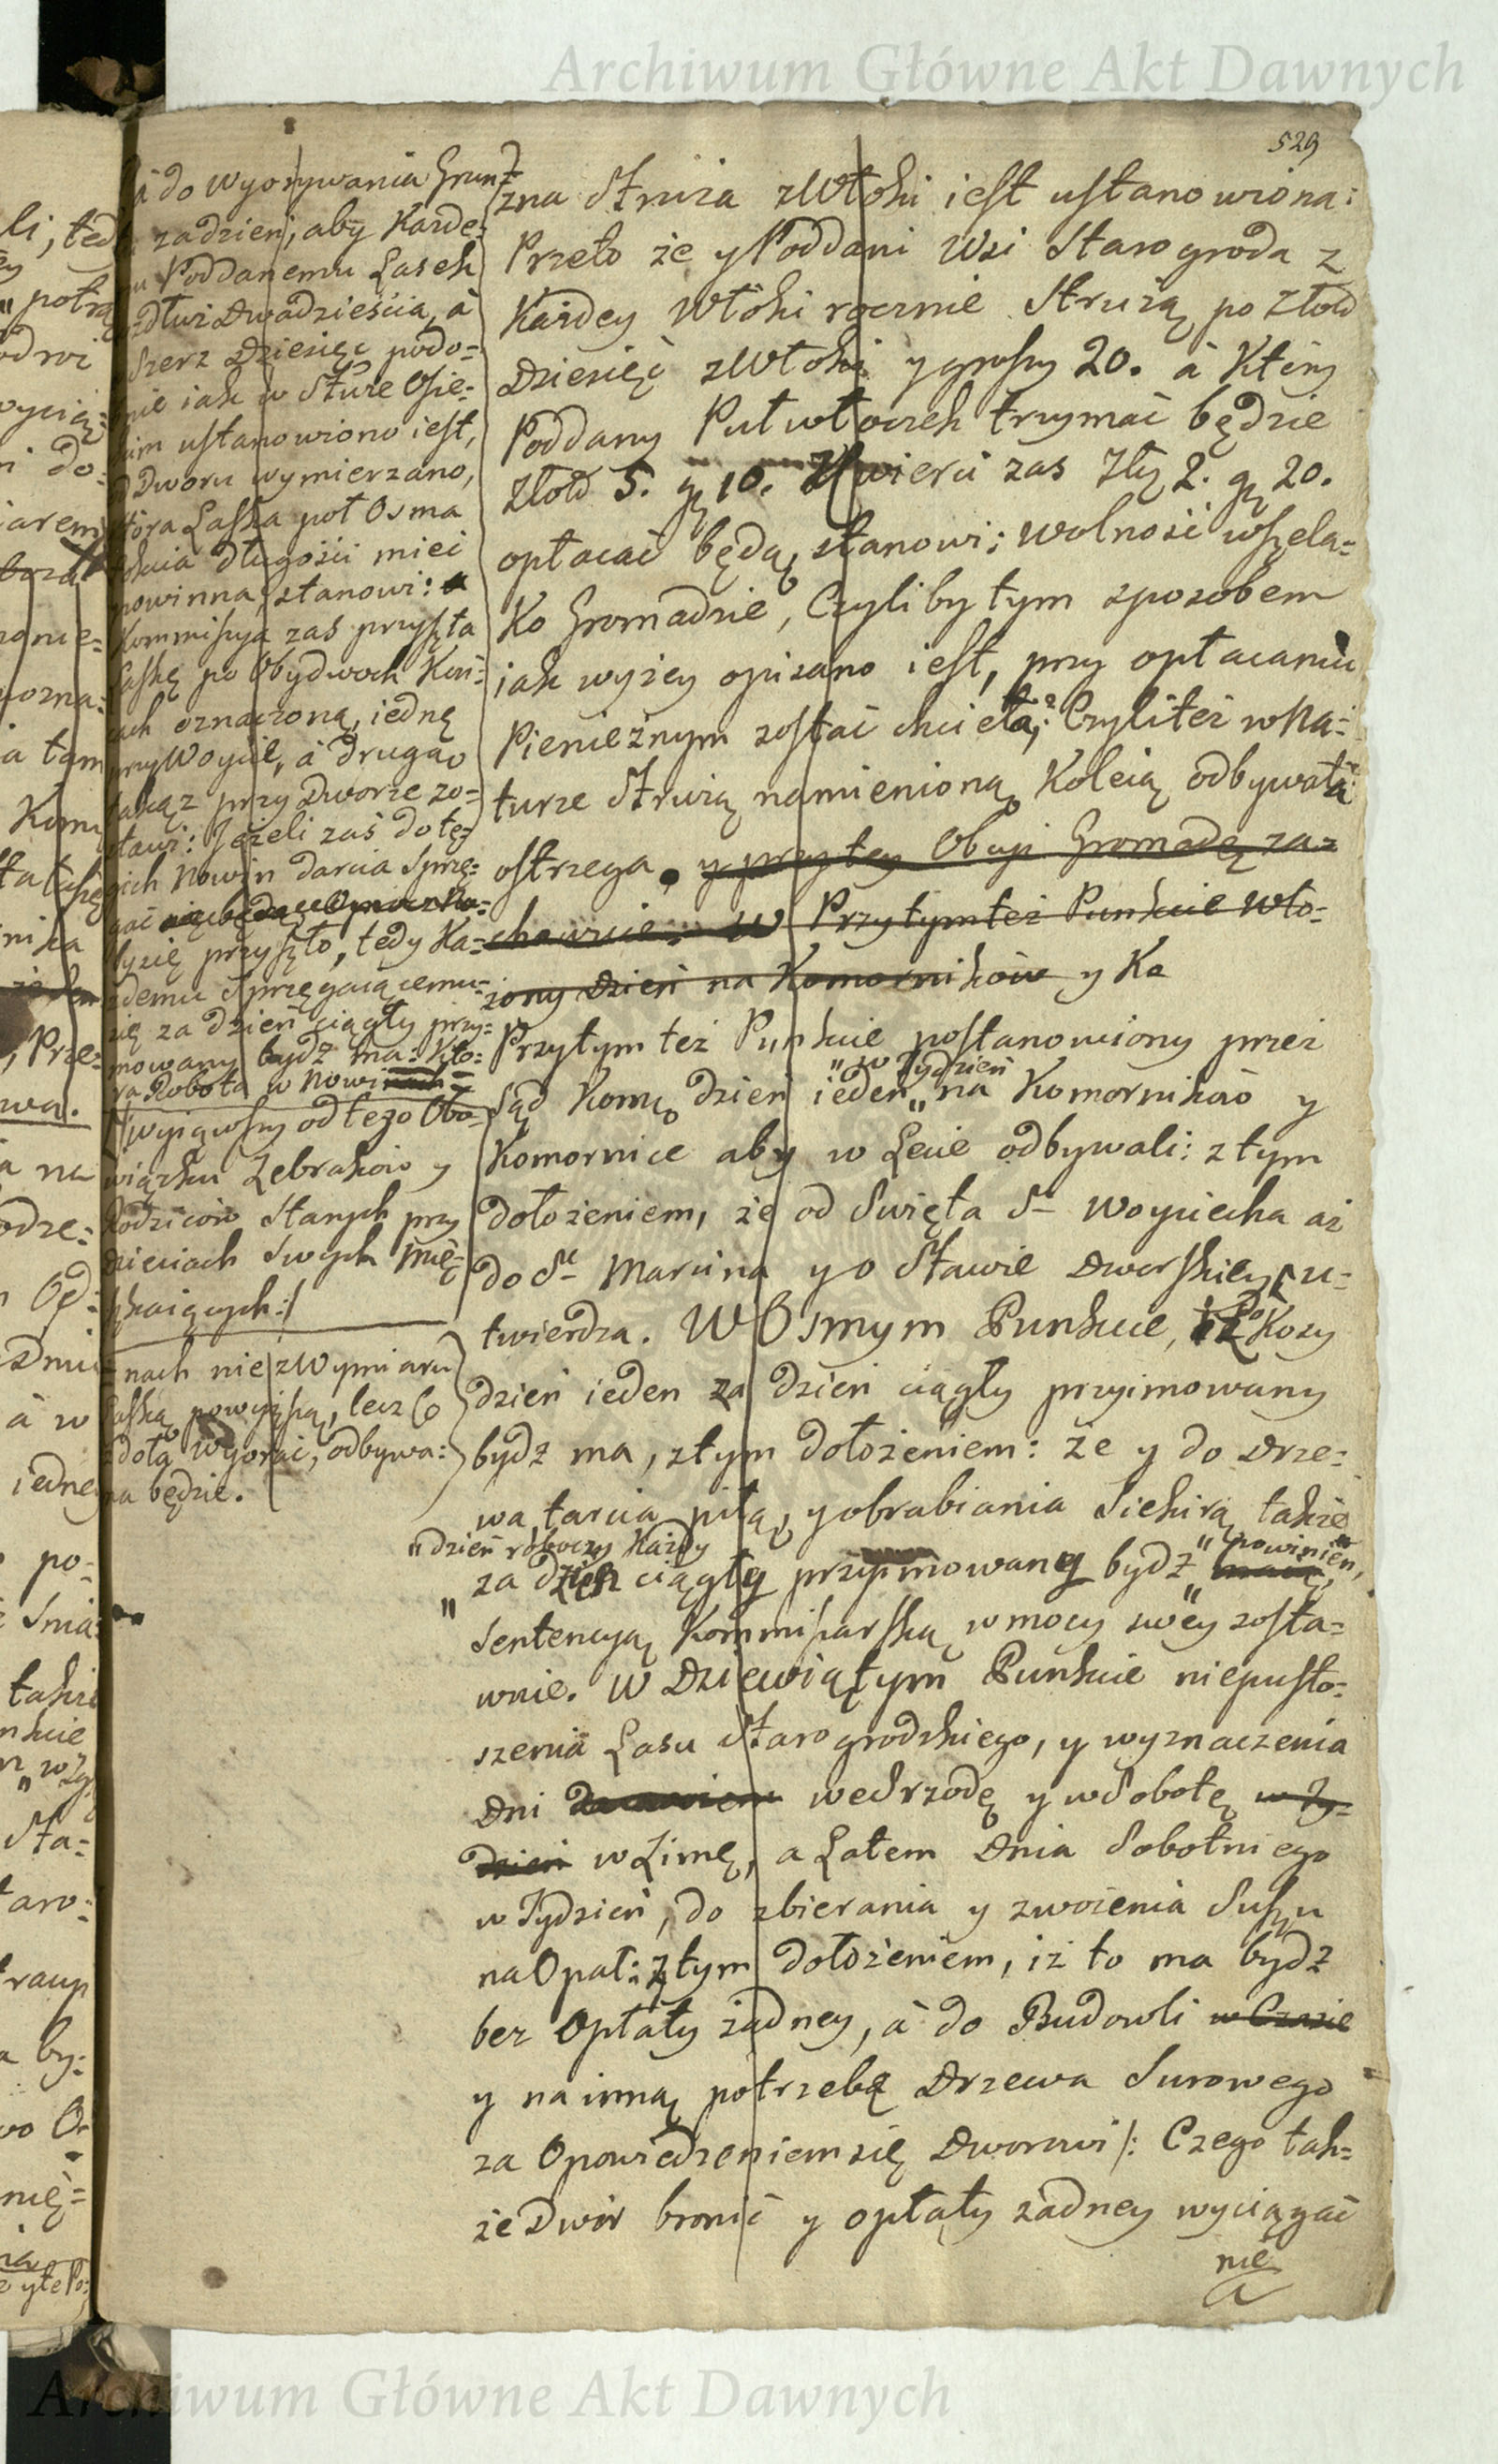 Archiwum Główne Akt Dawnych
529
zna Struza z Włoki iest ustanowiona:
Przeto że y Poddani Wsi Starogroda z
Każdey Włoki rocznie Strużą po Złott
Dziesięć z Włoki y groszy 20. à Który
Poddany Puł włoczek trzymać będzie
Złott 5. gr 10. Zwierci zas Złł 2. gr 20.
opłacać będą, stanowi; wolność wszela=
Ko Gromadzie, Czyliby tym sposobem
iak wyżey opisano iest, przy opłacaniu
Pienieżnym zostać chciała; Czyliteż w Na=
turze Strużą namienioną Koleią odbywała
ostrzega. y przytey Obuji Gromadę za=
chowuie: w Przytymteż Punkcie wło=
żony Dzień na Komorników y Ka
Przytymteż Punkcie postanowiony przez
"w Tydzień
Sąd Komq dzień ieden " na Komornikow y
Komornice aby w Lecie odbywali: ztym
dołożeniem, że od Swięta S. Woyciecha aż
do S. Marcina y o Stawie Dworskiey u=
twierdza. W Osmym Punkcie, iż Do Kosy
dzień ieden za dzień ciągły przyimowany
bydz ma, ztym dołożeniem: że y do Drze=
wa, tarcia piłą, y obrabiania Siekirą także
"dzień roboczy Każdy
" za dzień ciągły przyimowany bydz " powinien,
Sentencyą Kommisarską w mocy swey zosta=
wnie. W Dziewiątym Punkcie niepusto=
szenia Lasu Starogrodzkiego, y wyznaczenia
Dni we Srzodę y w Sobotę w Ty=
dzień w Zimę, a Latem Dnia Sobotniego
w Tydzień, do zbierania y zwożenia Suszu
na Opał: ztym dołożeniem, iż to ma bydz
bez Opłaty żadney, à do Budowli w Czasie
y na inną potrzebę Drzewa Surowego
za Opowiedzeniem się Dworowi /: Czego tak=
że Dwór bronić y opłaty żadney wyciągać
nie
à do wyorywania Grun=
za dzień, aby Każde=
mu Poddanemu Łasek
zdłuż Dwadzieścia, à
Szerz Dziesięć podo=
nie iak w Sturze Osie=
kim ustanowiono iest,
Dworu wymierzano,
tóra Łaska poł Osma
łokcia długości mieć
powinna, stanowi:
Kommisya zas przyszła
Łaskę po Obydwoch Koń=
cach oznaczoną, iednę
przy Woycie, à drugą
taką z przy Dworze zo=
stawi: Jeżeli zaś do tę=
gich Nowin darcia Sprzę=
gać
by się przyszło, tedy Ka=
zdemu Sprzęgaiącemu=
się za dzień ciągły przy=
mowany bydz ma. Któ=
ra Robota w Nowinach=
/wyiąwszy od tego Obo=
wiązku Zebrakow y
Rodziców Starych przy
dzieciach Swych mię=
szkaiących:/
nach nie z Wymiaru
łaską powyższą, lecz Co
zdołą wyorać, odbywa=
na będzie.
Archiwum Główne Akt Dawnych